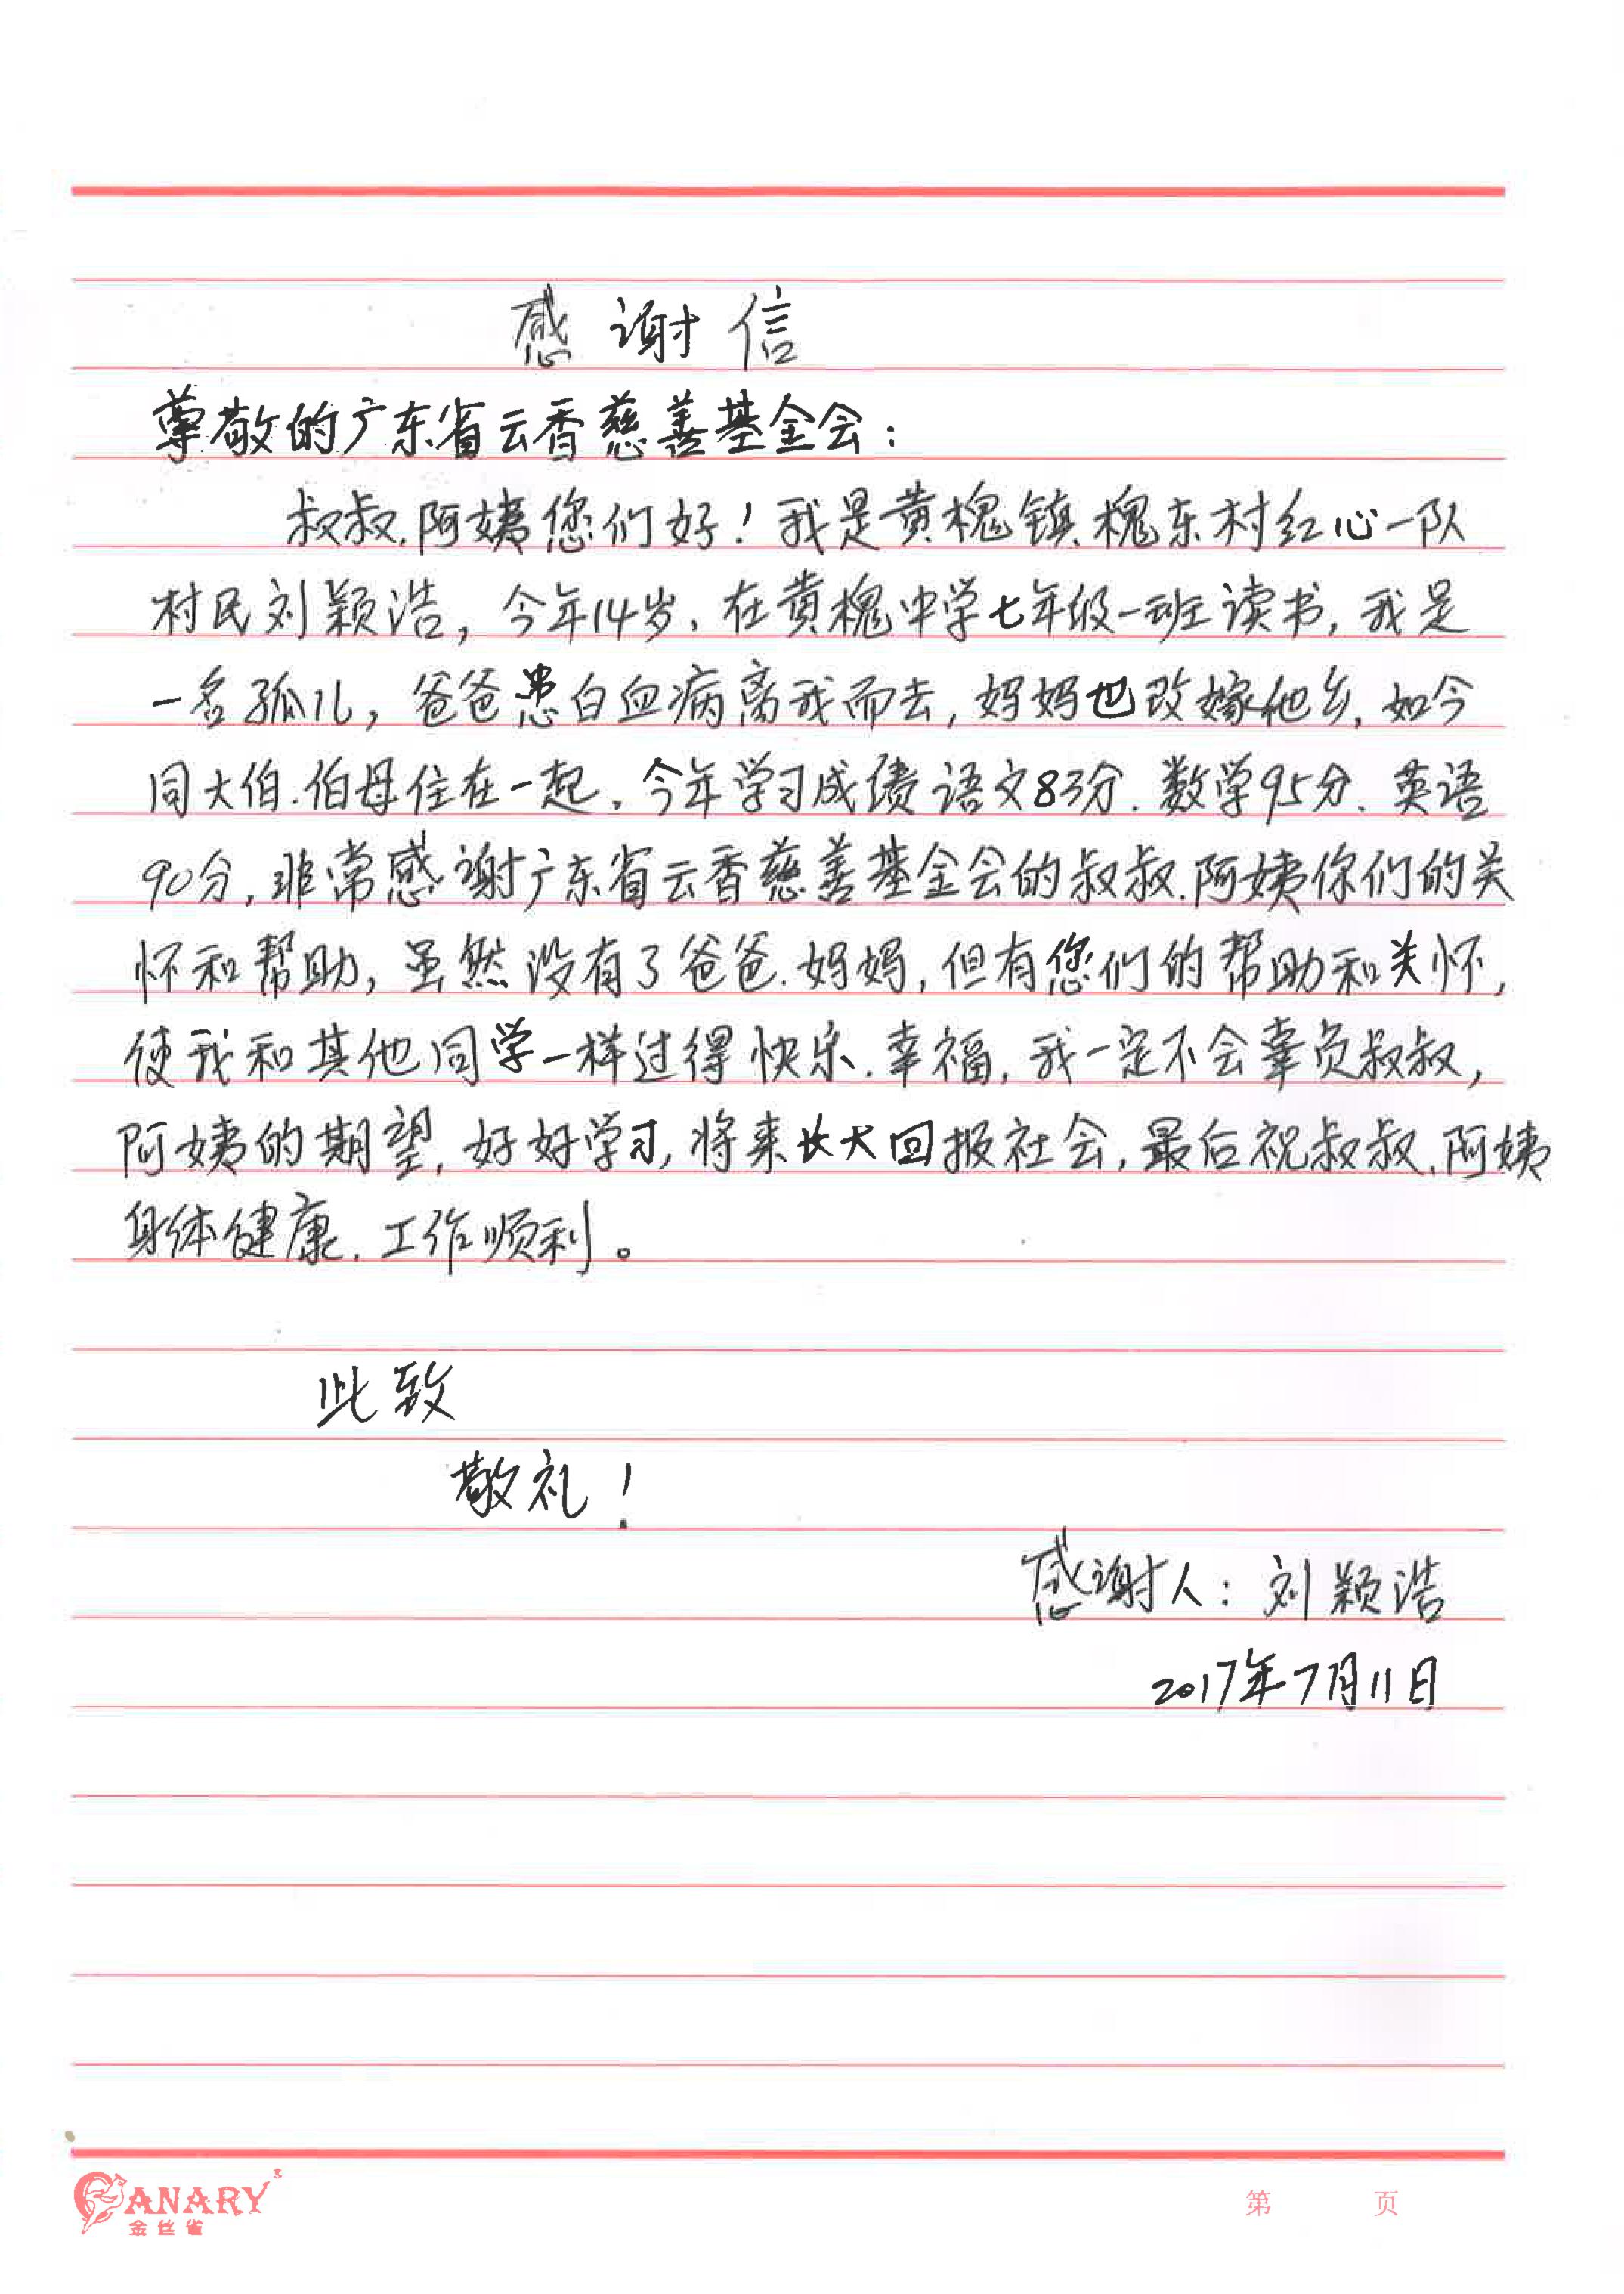 感谢信
尊敬的广东省云香慈善基金会：
叔叔.阿姨您们好！我是黄槐镇槐东村红心一队
村民刘颖浩，今年14岁，在黄槐中学七年级一班读书，我是
一名孤儿，爸爸患白血病离我而去，妈妈也改嫁他乡，如今
同大伯.伯母住在一起。今年学习成绩语文83分.数学95分.英语
90分，非常感谢广东省云香慈善基金会的叔叔.阿姨你们的关
怀和帮助，虽然没有了爸爸.妈妈，但有您们的帮助和关怀，
使我和其他同学一样过得快乐.幸福，我一定不会辜负叔叔，
阿姨的期望，好好学习，将来长大回报社会，最后祝叔叔.阿姨
身体健康.工作顺利。
此致
敬礼！
感谢人：刘颖浩
2017年7月11日
CANARY
金丝雀
第 页